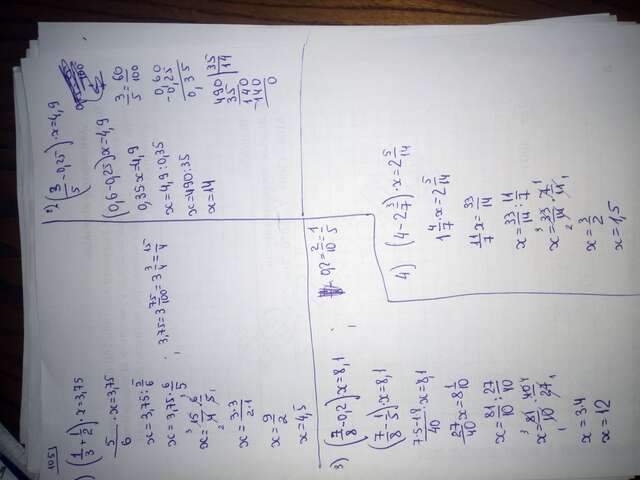 105)
1) (1/3 + 1/2) · x = 3,75
5/6 · x = 3,75
x = 3,75 : 5/6
x = 3,75 · 6/5
x = 15/4 · 6/5
x = 3·3/2·1
x = 9/2
x = 4,5
3,75 = 3 75/100 = 3 3/4 = 15/4
2) (3/5 - 0,25) · x = 4,9
(0,6 - 0,25) x = 4,9
0,35 x = 4,9
x = 4,9 : 0,35
x = 490 : 35
x = 14
3/5 = 60/100
0,60
- 0,25
0,35
490 | 35
35 | 14
140
- 140
0
3) (7/8 - 0,2) x = 8,1
(7/8 - 1/5) x = 8,1
7·5-1·8/40 · x = 8,1
27/40 x = 8 1/10
x = 81/10 : 27/40
x = 81/10 · 40/27
x = 3·4
x = 12
0,2 = 2/10 = 1/5
4) (4 - 2 3/7) · x = 2 5/14
1 4/7 · x = 2 5/14
11/7 x = 33/14
x = 33/14 : 11/7
x = 33/14 · 7/11
x = 3/2
x = 1,5